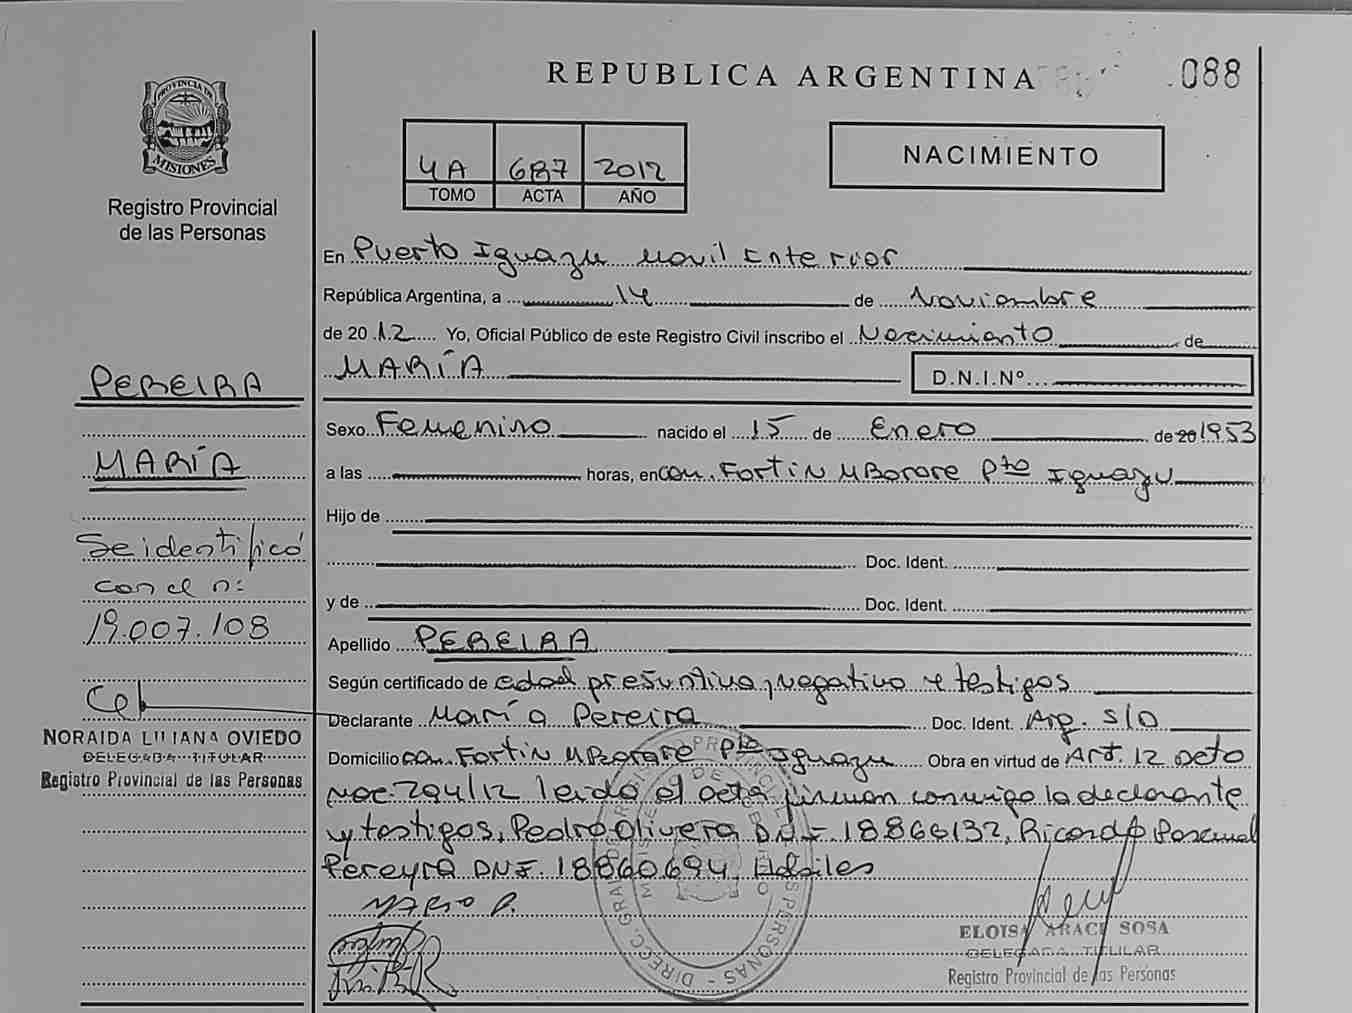 REPUBLICA ARGENTINA
088
PROVINCIA DE
MISIONES
Registro Provincial
de las Personas
4A 687 2012
TOMO ACTA AÑO
NACIMIENTO
En Puerto Iguazu Movil Interior
República Argentina, a 14 de Noviembre
de 2012 Yo, Oficial Público de este Registro Civil inscribo el Nacimiento de
MARÍA D.N.I.Nº
Sexo Femenino nacido el 15 de Enero de 20 1953
a las horas, en Com. Fortin MBorore Pto Iguazu
Hijo de
Doc. Ident.
y de Doc. Ident.
Apellido PEREIRA
Según certificado de edad presuntiva, negativo y testigos
Declarante María Pereira Doc. Ident. Arg. S/D
Domicilio Com. Fortin MBorore Pto Iguazu Obra en virtud de Art. 12 Dcto
Nac 294/12 leido el acta firman conmigo la declarante
y testigos, Pedro Olivera DNI. 18866132, Ricardo Pascual
Pereyra DNI. 18860694. Habiles
MARIO P.
ELOISA ARACI SOSA
DELEGADA TITULAR
Registro Provincial de las Personas
PEREIRA
MARÍA
Se identificó
con el n:
19.007.108
NORAIDA LILIANA OVIEDO
DELEGADA TITULAR
Registro Provincial de las Personas